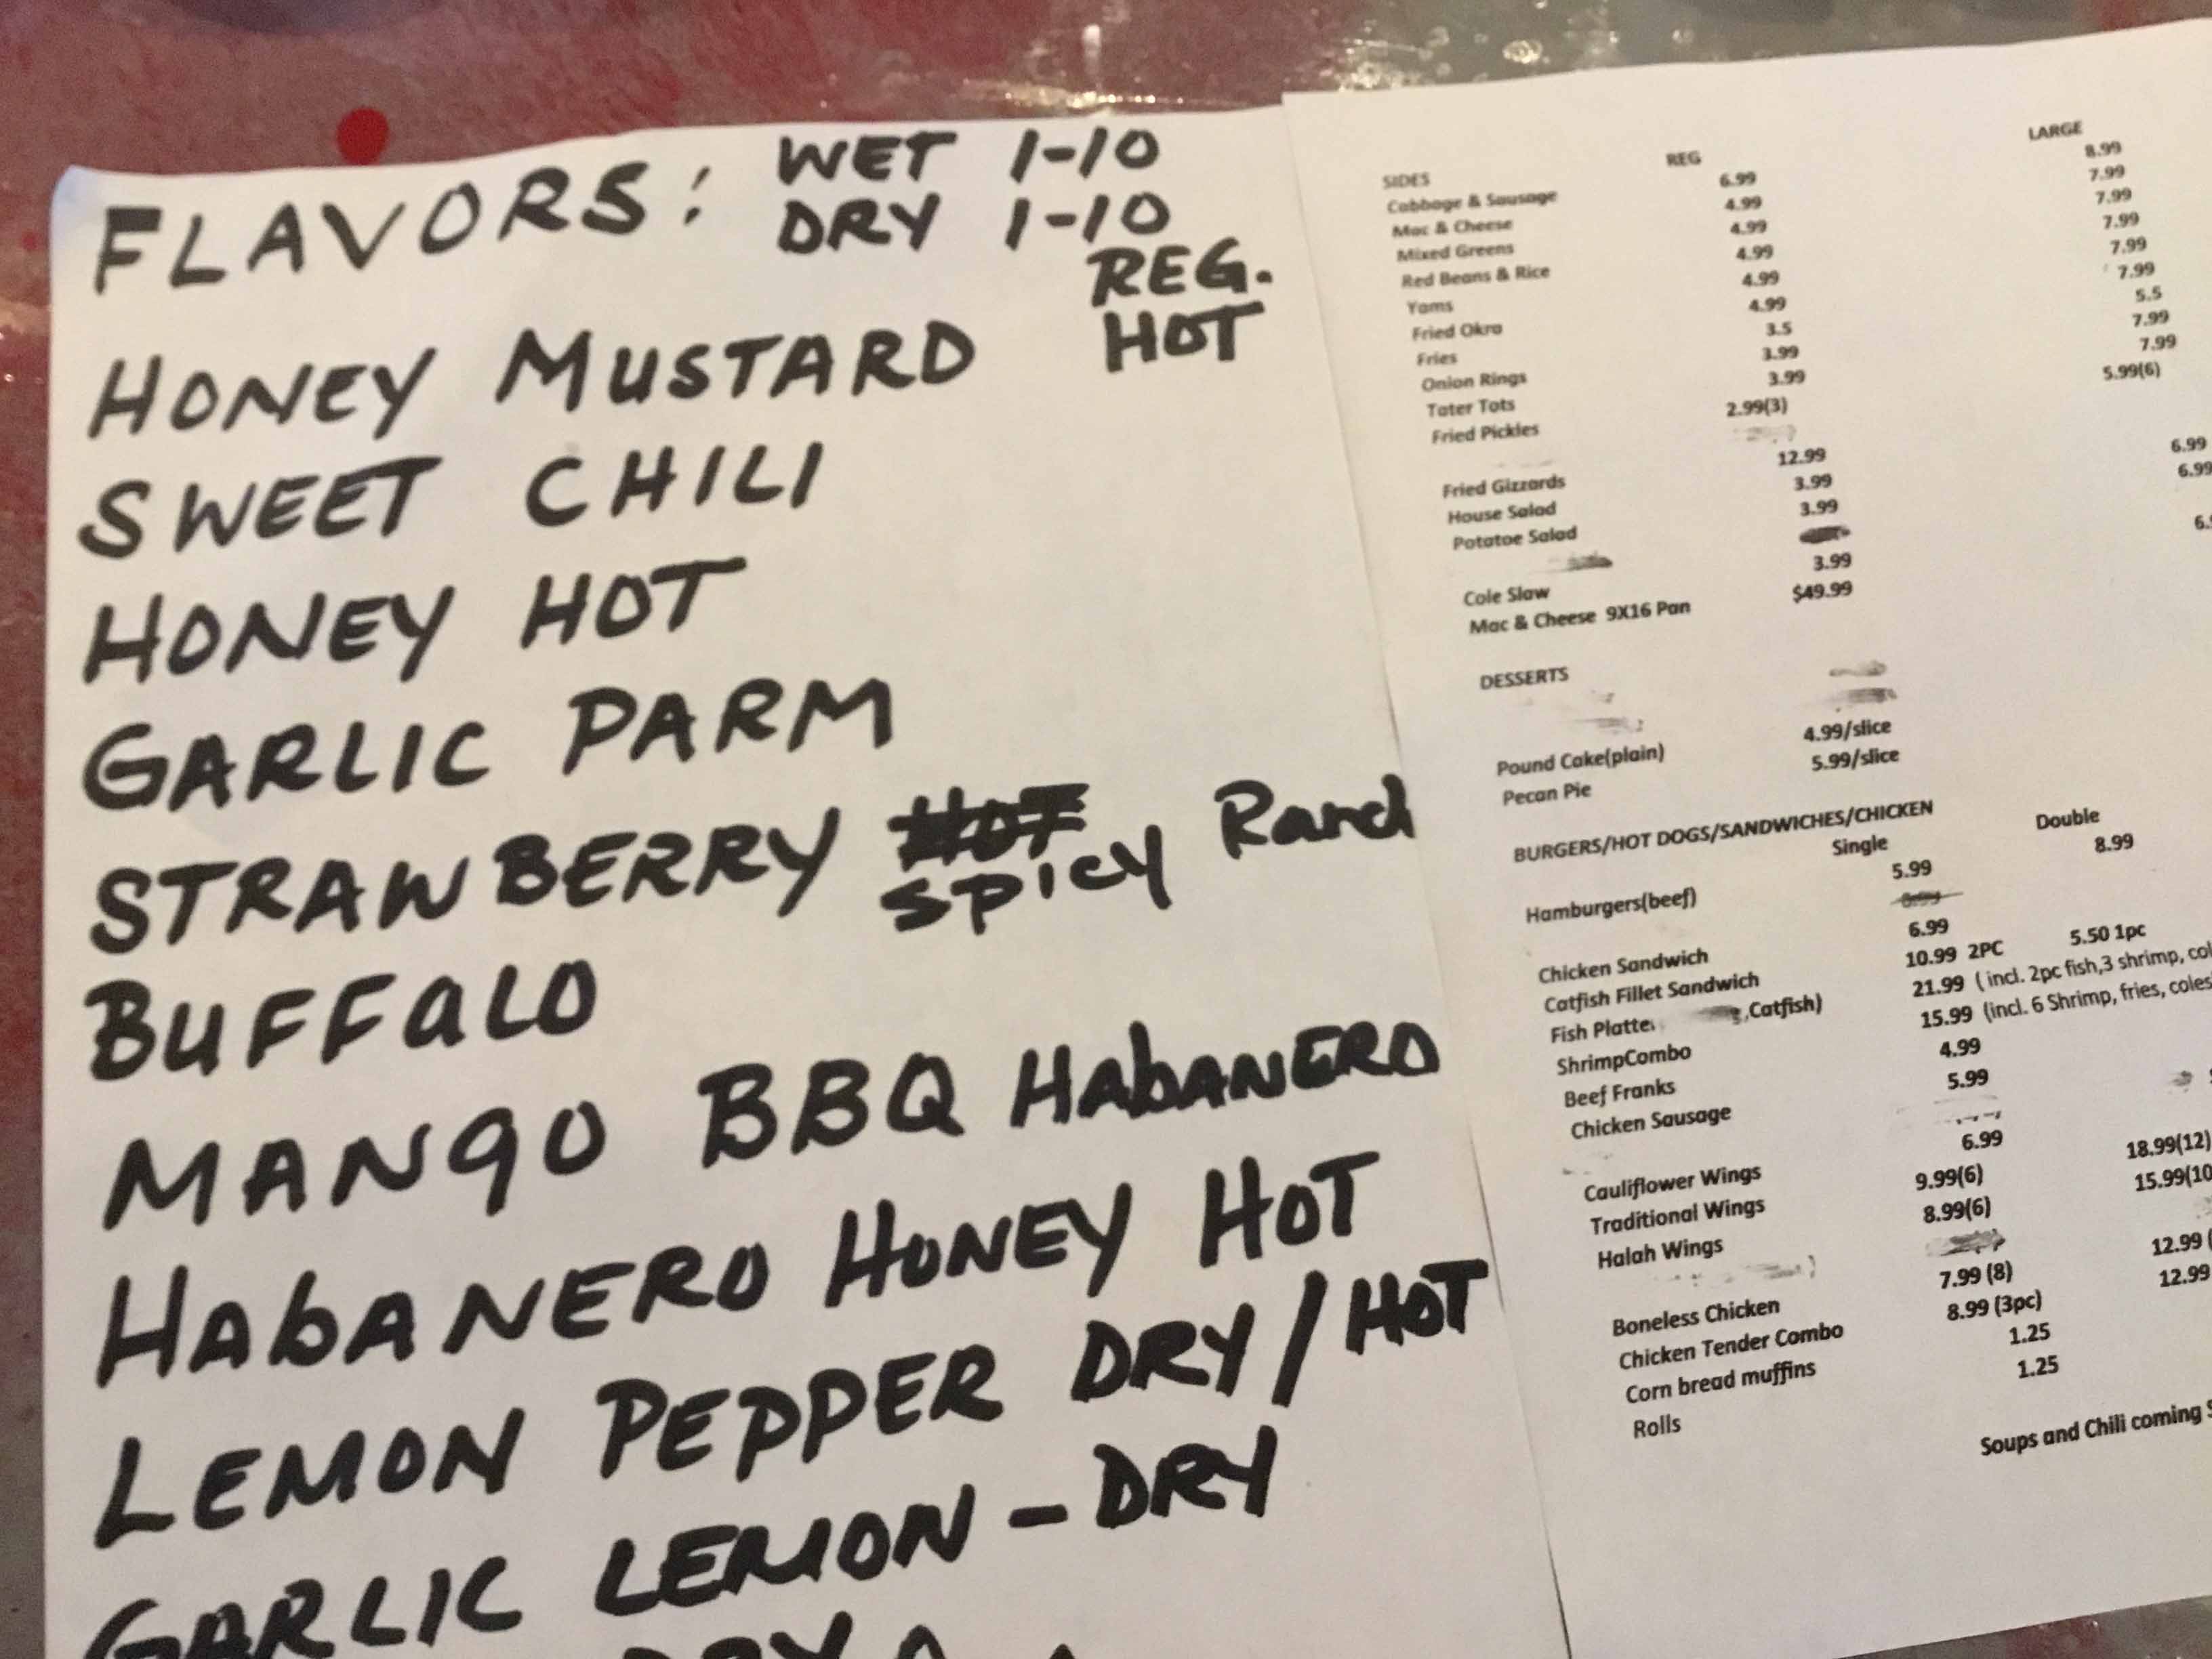 FLAVORS: WET 1-10
DRY 1-10
REG.
HONEY MUSTARD HOT
SWEET CHILI
HONEY HOT
GARLIC PARM
STRAWBERRY HOT Ranch
SPICY
BUFFALO
MANGO BBQ HABANERO
HABANERO HONEY HOT
LEMON PEPPER DRY/HOT
GARLIC LEMON - DRY
DRY
REG LARGE
SIDES
Cabbage & Sausage 6.99 8.99
Mac & Cheese 4.99 7.99
Mixed Greens 4.99 7.99
Red Beans & Rice 4.99 7.99
Yams 4.99 7.99
Fried Okra 4.99 7.99
Fries 3.5 5.5
Onion Rings 3.99 7.99
Tater Tots 3.99 7.99
Fried Pickles 2.99(3) 5.99(6)
Fried Gizzards 12.99
House Salad 3.99 6.99
Potatoe Salad 3.99 6.99
Cole Slaw 3.99
Mac & Cheese 9X16 Pan $49.99
DESSERTS
Pound Cake(plain) 4.99/slice
Pecan Pie 5.99/slice
BURGERS/HOT DOGS/SANDWICHES/CHICKEN
Single Double
Hamburgers(beef) 5.99 8.99
Chicken Sandwich 6.99
Catfish Fillet Sandwich 10.99 2PC 5.50 1pc
Fish Platte ,Catfish) 21.99 ( incl. 2pc fish,3 shrimp, col
ShrimpCombo 15.99 (incl. 6 Shrimp, fries, coles
Beef Franks 4.99
Chicken Sausage 5.99
Cauliflower Wings 6.99
Traditional Wings 9.99(6) 18.99(12)
Halah Wings 8.99(6) 15.99(10
Boneless Chicken 7.99 (8) 12.99 (
Chicken Tender Combo 8.99 (3pc) 12.99
Corn bread muffins 1.25
Rolls 1.25
Soups and Chili coming